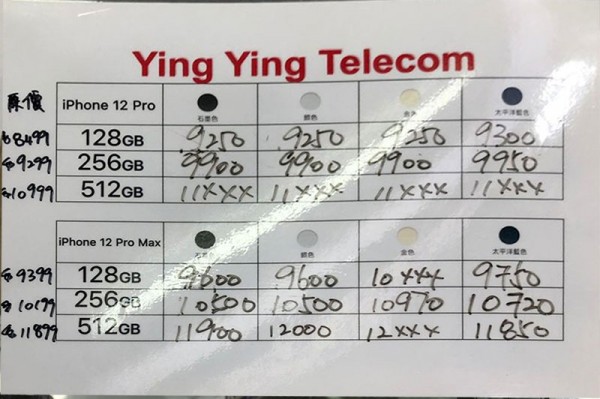 Ying Ying Telecom
原價 iPhone 12 Pro 石墨色 銀色 金色 太平洋藍色
$8499 128GB 9250 9250 9250 9300
$9299 256GB 9900 9900 9900 9950
$10999 512GB 11xxx 11xxx 11xxx 11xxx
iPhone 12 Pro Max 石墨色 銀色 金色 太平洋藍色
$9399 128GB 9600 9600 10xxx 9750
$10199 256GB 10500 10500 10970 10720
$11899 512GB 11900 12000 12xxx 11850